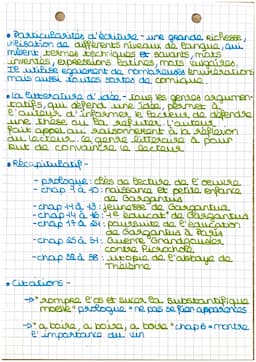 • Particularités d'écriture - une grande richesse,
utilisation de différents niveaux de langue, qui
mêlent termes techniques et savants, mots
inventés, expressions latines, mots vulgaires.
Il utilise également de nombreuses énumérations
mais aussi toutes sortes de comique.
• La littérature d'idée - tous les genres argumen-
tatifs, qui défend une idée, permet à
l'auteur d'informer le lecteur, de défendre
une thèse ou la réfuter. L'auteur
fait appel au raisonnement à la réflexion
du lecteur. Ce genre littéraire a pour
but de convaincre le lecteur
• Récapitulatif -
- prologue : clés de lecture de l'oeuvre
- chap 1 à 10 : naissance et petite enfance
de Gargantua
- chap 11 à 13 : jeunesse de Gargantua
- chap 14 à 16 : 1e éducat° de Gargantua
- chap 17 à 24 : poursuite de l'éducation
de Gargantua à Paris
- chap 25 à 51 : Guerre Grandgousier
contre Picrochole
- chap 52 à 58 : utopie de l'abbaye de
Thélème
• Citations -
→ "rompre l'os et sucer la substantifique
moelle" prologue = ne pas se fier apparences
→ "à boire, à boire, à boire" chap 6 = montre
l'importance du vin